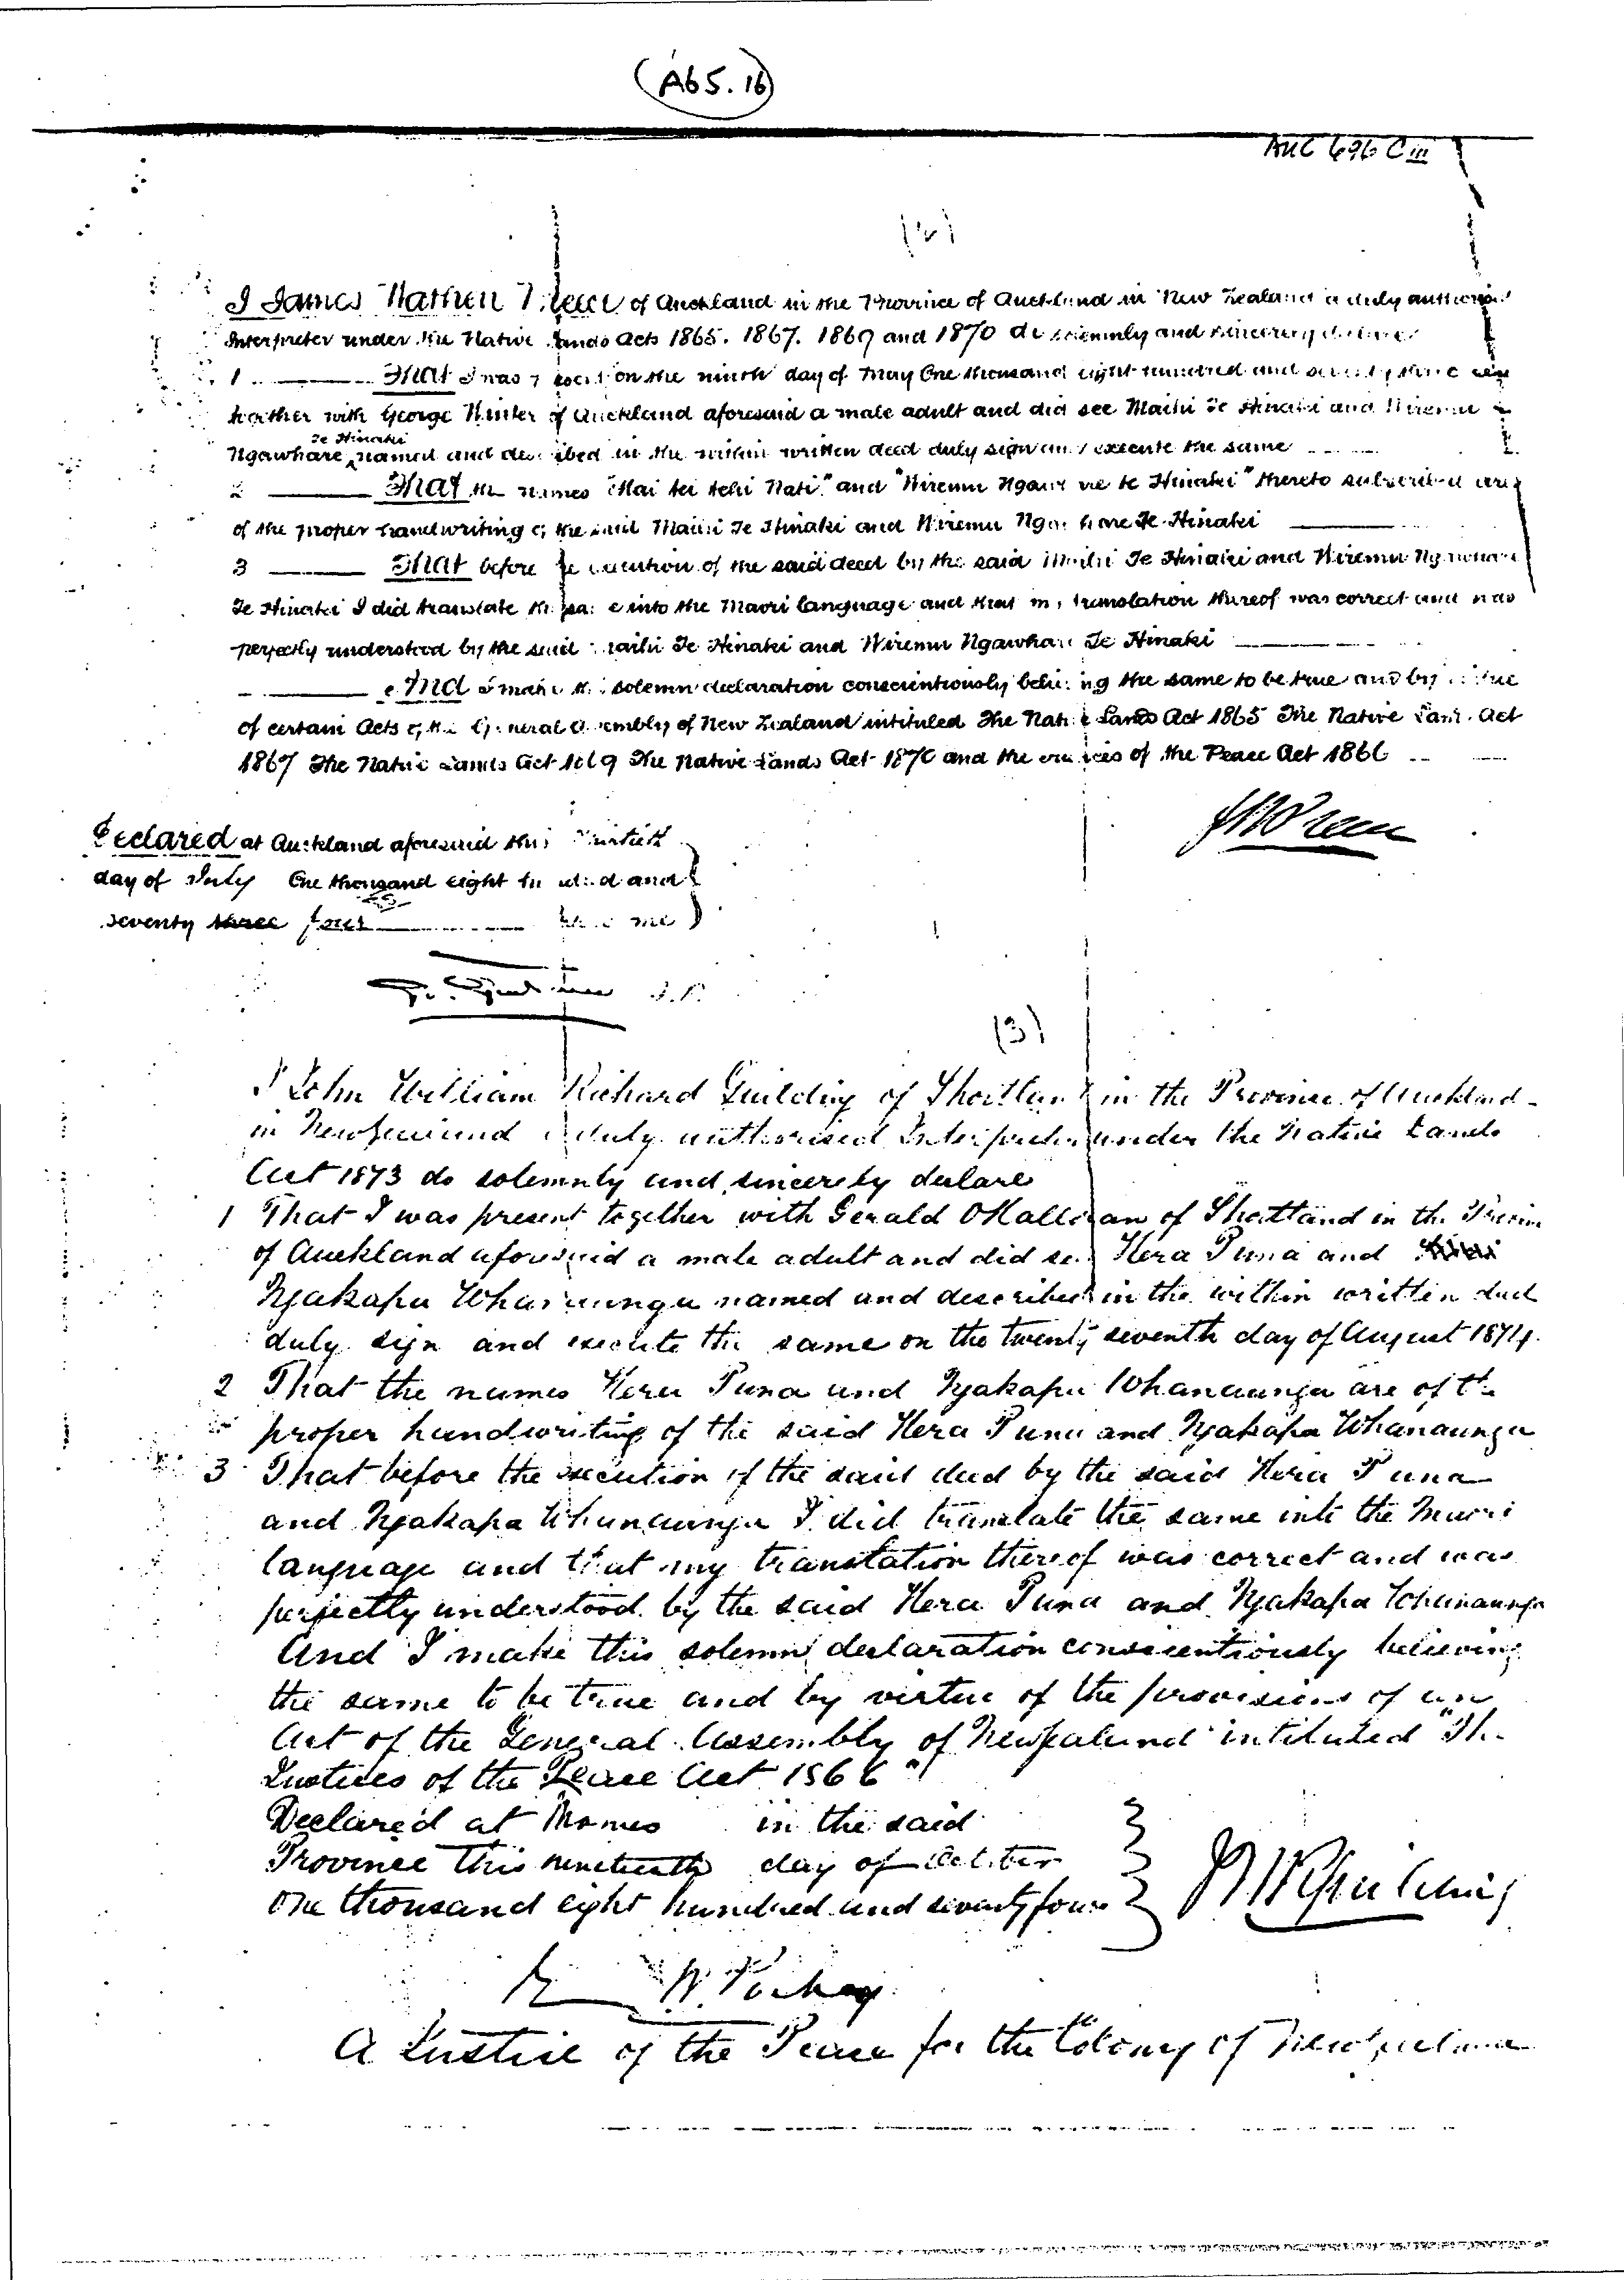 (Ab 5. 16)
AUC 696 C III
(2)
I James of Auckland in the Province of Auckland in New Zealand a duly
Interpreter under the Native Lands Acts 1865. 1867. 1869 and 1870 do solemnly and sincerely declare
1 That I was on the ninth day of May One thousand eight hundred and seventy three
together with George of Auckland aforesaid a male adult and did see Maihi Te Hinaki and Wiremu
Te Hinaki
Ngawhare named and described in the within written deed duly sign and execute the same
2 That the names and "Wiremu Ngawhare te Hinaki" thereto subscribed are
of the proper handwriting of the said Maihi Te Hinaki and Wiremu Ngawhare Te Hinaki
3 That before the execution of the said deed by the said Maihi Te Hinaki and Wiremu Ngawhare
Te Hinaki I did translate the same into the Maori language and that my translation thereof was correct and was
perfectly understood by the said Maihi Te Hinaki and Wiremu Ngawhare Te Hinaki
And I make this solemn declaration conscientiously believing the same to be true and by virtue
of certain Acts of the General Assembly of New Zealand intituled The Native Lands Act 1865 The Native Lands Act
1867 The Native Lands Act 1869 The Native Lands Act 1870 and the Justices of the Peace Act 1866
Declared at Auckland aforesaid this thirtieth
day of July One thousand eight hundred and
seventy three four before me
J.P.
(3)
I John William Richard Guilding of Shortland in the Province of Auckland
in New Zealand a duly authorised Interpreter under the Native Lands
Act 1873 do solemnly and sincerely declare
1 That I was present together with Gerald OHalloran of Shortland in the Province
of Auckland aforesaid a male adult and did see Hera Puna and
Ngakapa Whanaunga named and described in the within written deed
duly sign and execute the same on the twenty seventh day of August 1874.
2 That the names Hera Puna and Ngakapa Whanaunga are of the
proper handwriting of the said Hera Puna and Ngakapa Whanaunga
3 That before the execution of the said deed by the said Hera Puna
and Ngakapa Whanaunga I did translate the same into the Maori
language and that my translation thereof was correct and was
perfectly understood by the said Hera Puna and Ngakapa Whanaunga
And I make this solemn declaration conscientiously believing
the same to be true and by virtue of the provisions of an
Act of the General Assembly of New Zealand intituled "The
Justices of the Peace Act 1866"
Declared at Thames in the said
Province this nineteenth day of October
One thousand eight hundred and seventy four
JWRGuilding
A Justice of the Peace for the Colony of New Zealand